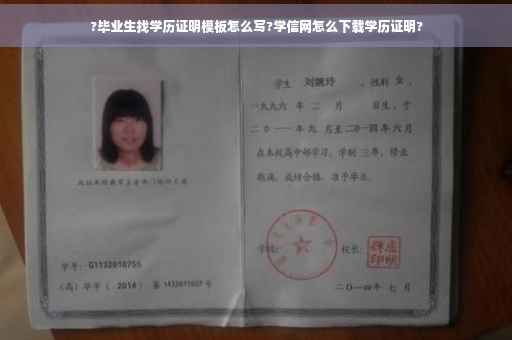 ?毕业生找学历证明模板怎么写?学信网怎么下载学历证明?
学生 刘婉玲 ，性别 女 ，
一九九六 年 二 月 日生，于
二〇一一 年 九 月至 二〇一四 年 六 月
在本校高中部学习，学制 三 年，修业
期满，成绩合格，准予毕业。
学号： G1132010755
（高）毕字（ 2014 ）第 1432011027 号
学校： 校长：
二〇一四年 七 月